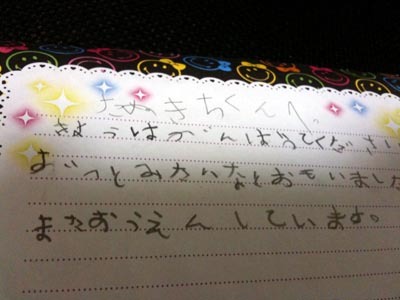 たぬきちくんへ
きょうはがんばってください
ずっとみたいなとおもいました
またおうえんしています。